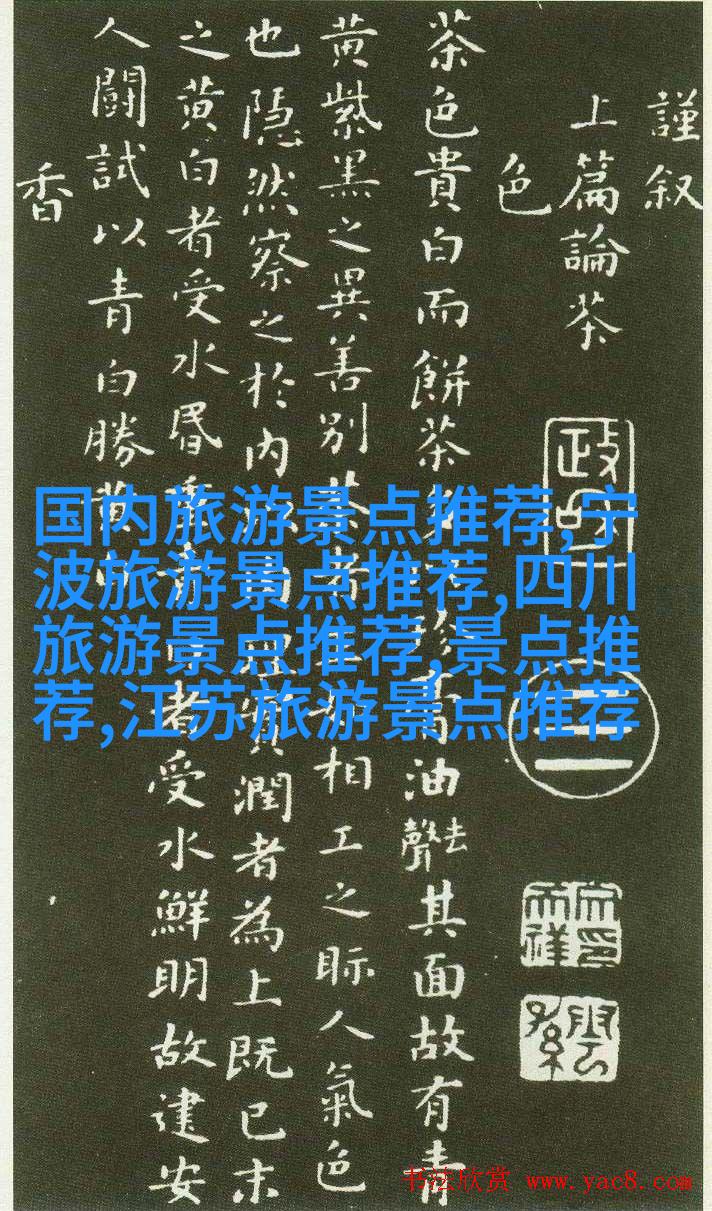 謹叙
上篇論茶
色
茶色貴白而餅茶珍膏油去聲其面故有青
黄紫黑之異善别茶者相工之眎人氣色
也隐然察之於内潤者為上既已末
之黄白者受水昬重者受水鮮明故建安
人闘試以青白勝黄白
香
政和
国内旅游景点推荐,宁
波旅游景点推荐,四川
旅游景点推荐,景点推
荐,江苏旅游景点推荐
书法欣赏 www.yac8.com